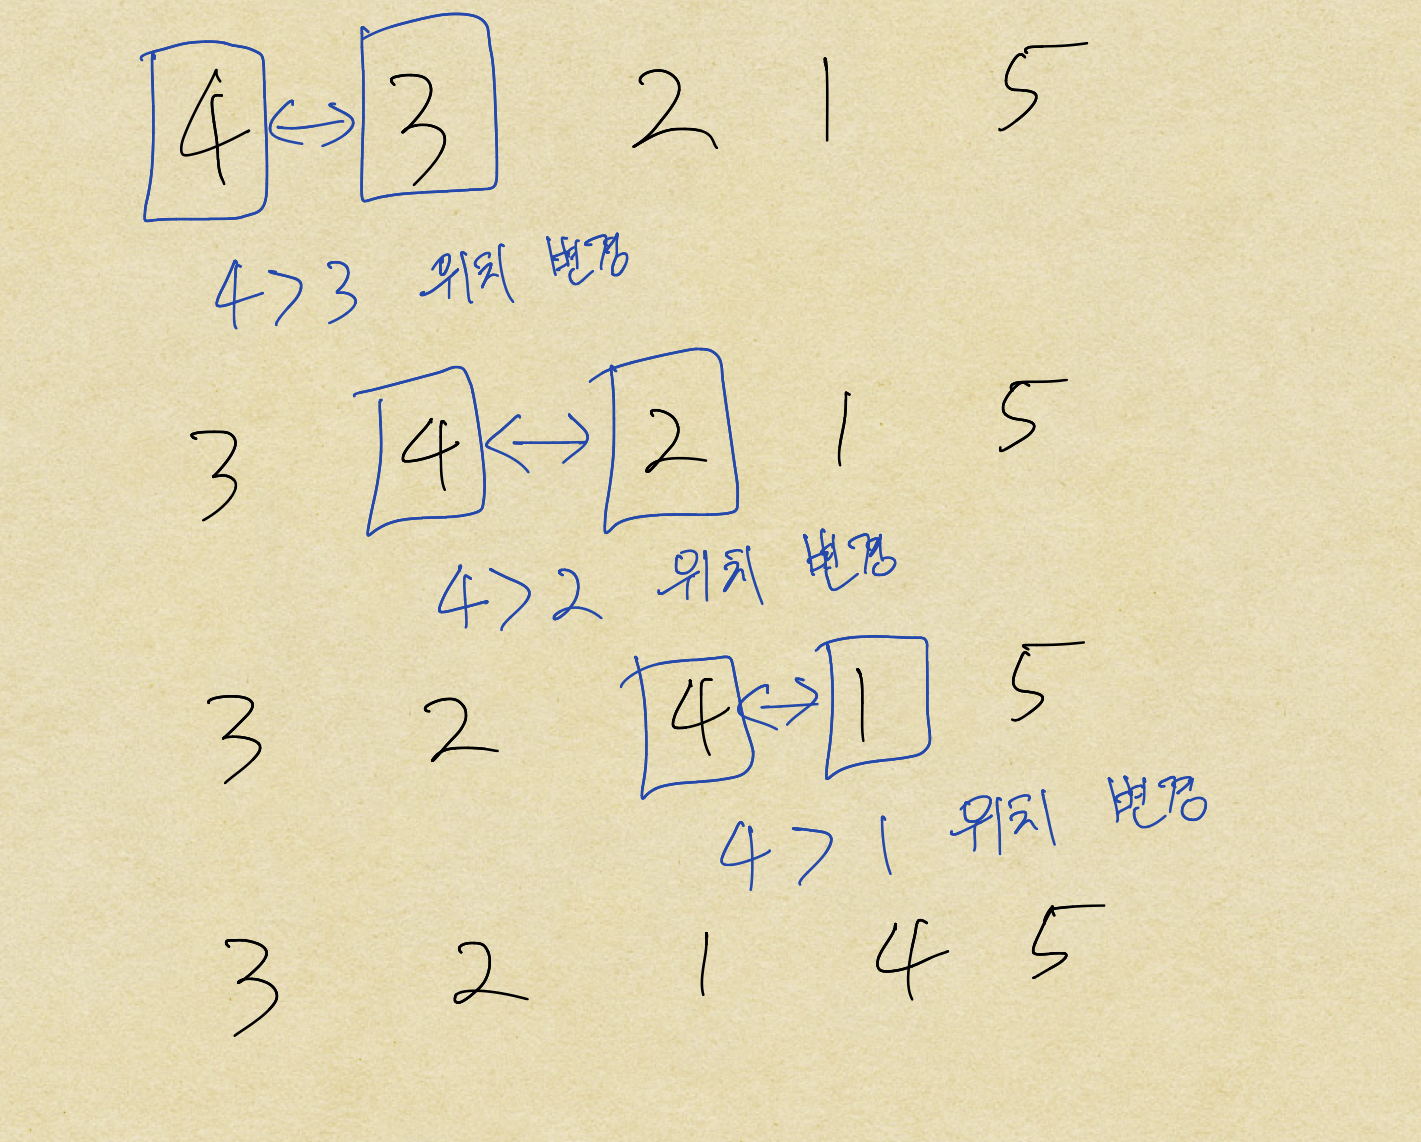 4 3 2 1 5
4>3 위치 변경
3 4 2 1 5
4>2 위치 변경
3 2 4 1 5
4>1 위치 변경
3 2 1 4 5